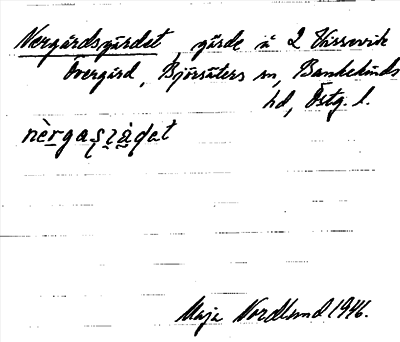 Nergårdsgärdet, gärde å 2 Hårsevik
Övergård, Björsäters sn, Bankekinds
hd, Östg. l.
nèrgaʂɟàdat
Maja Nordlund 1946.